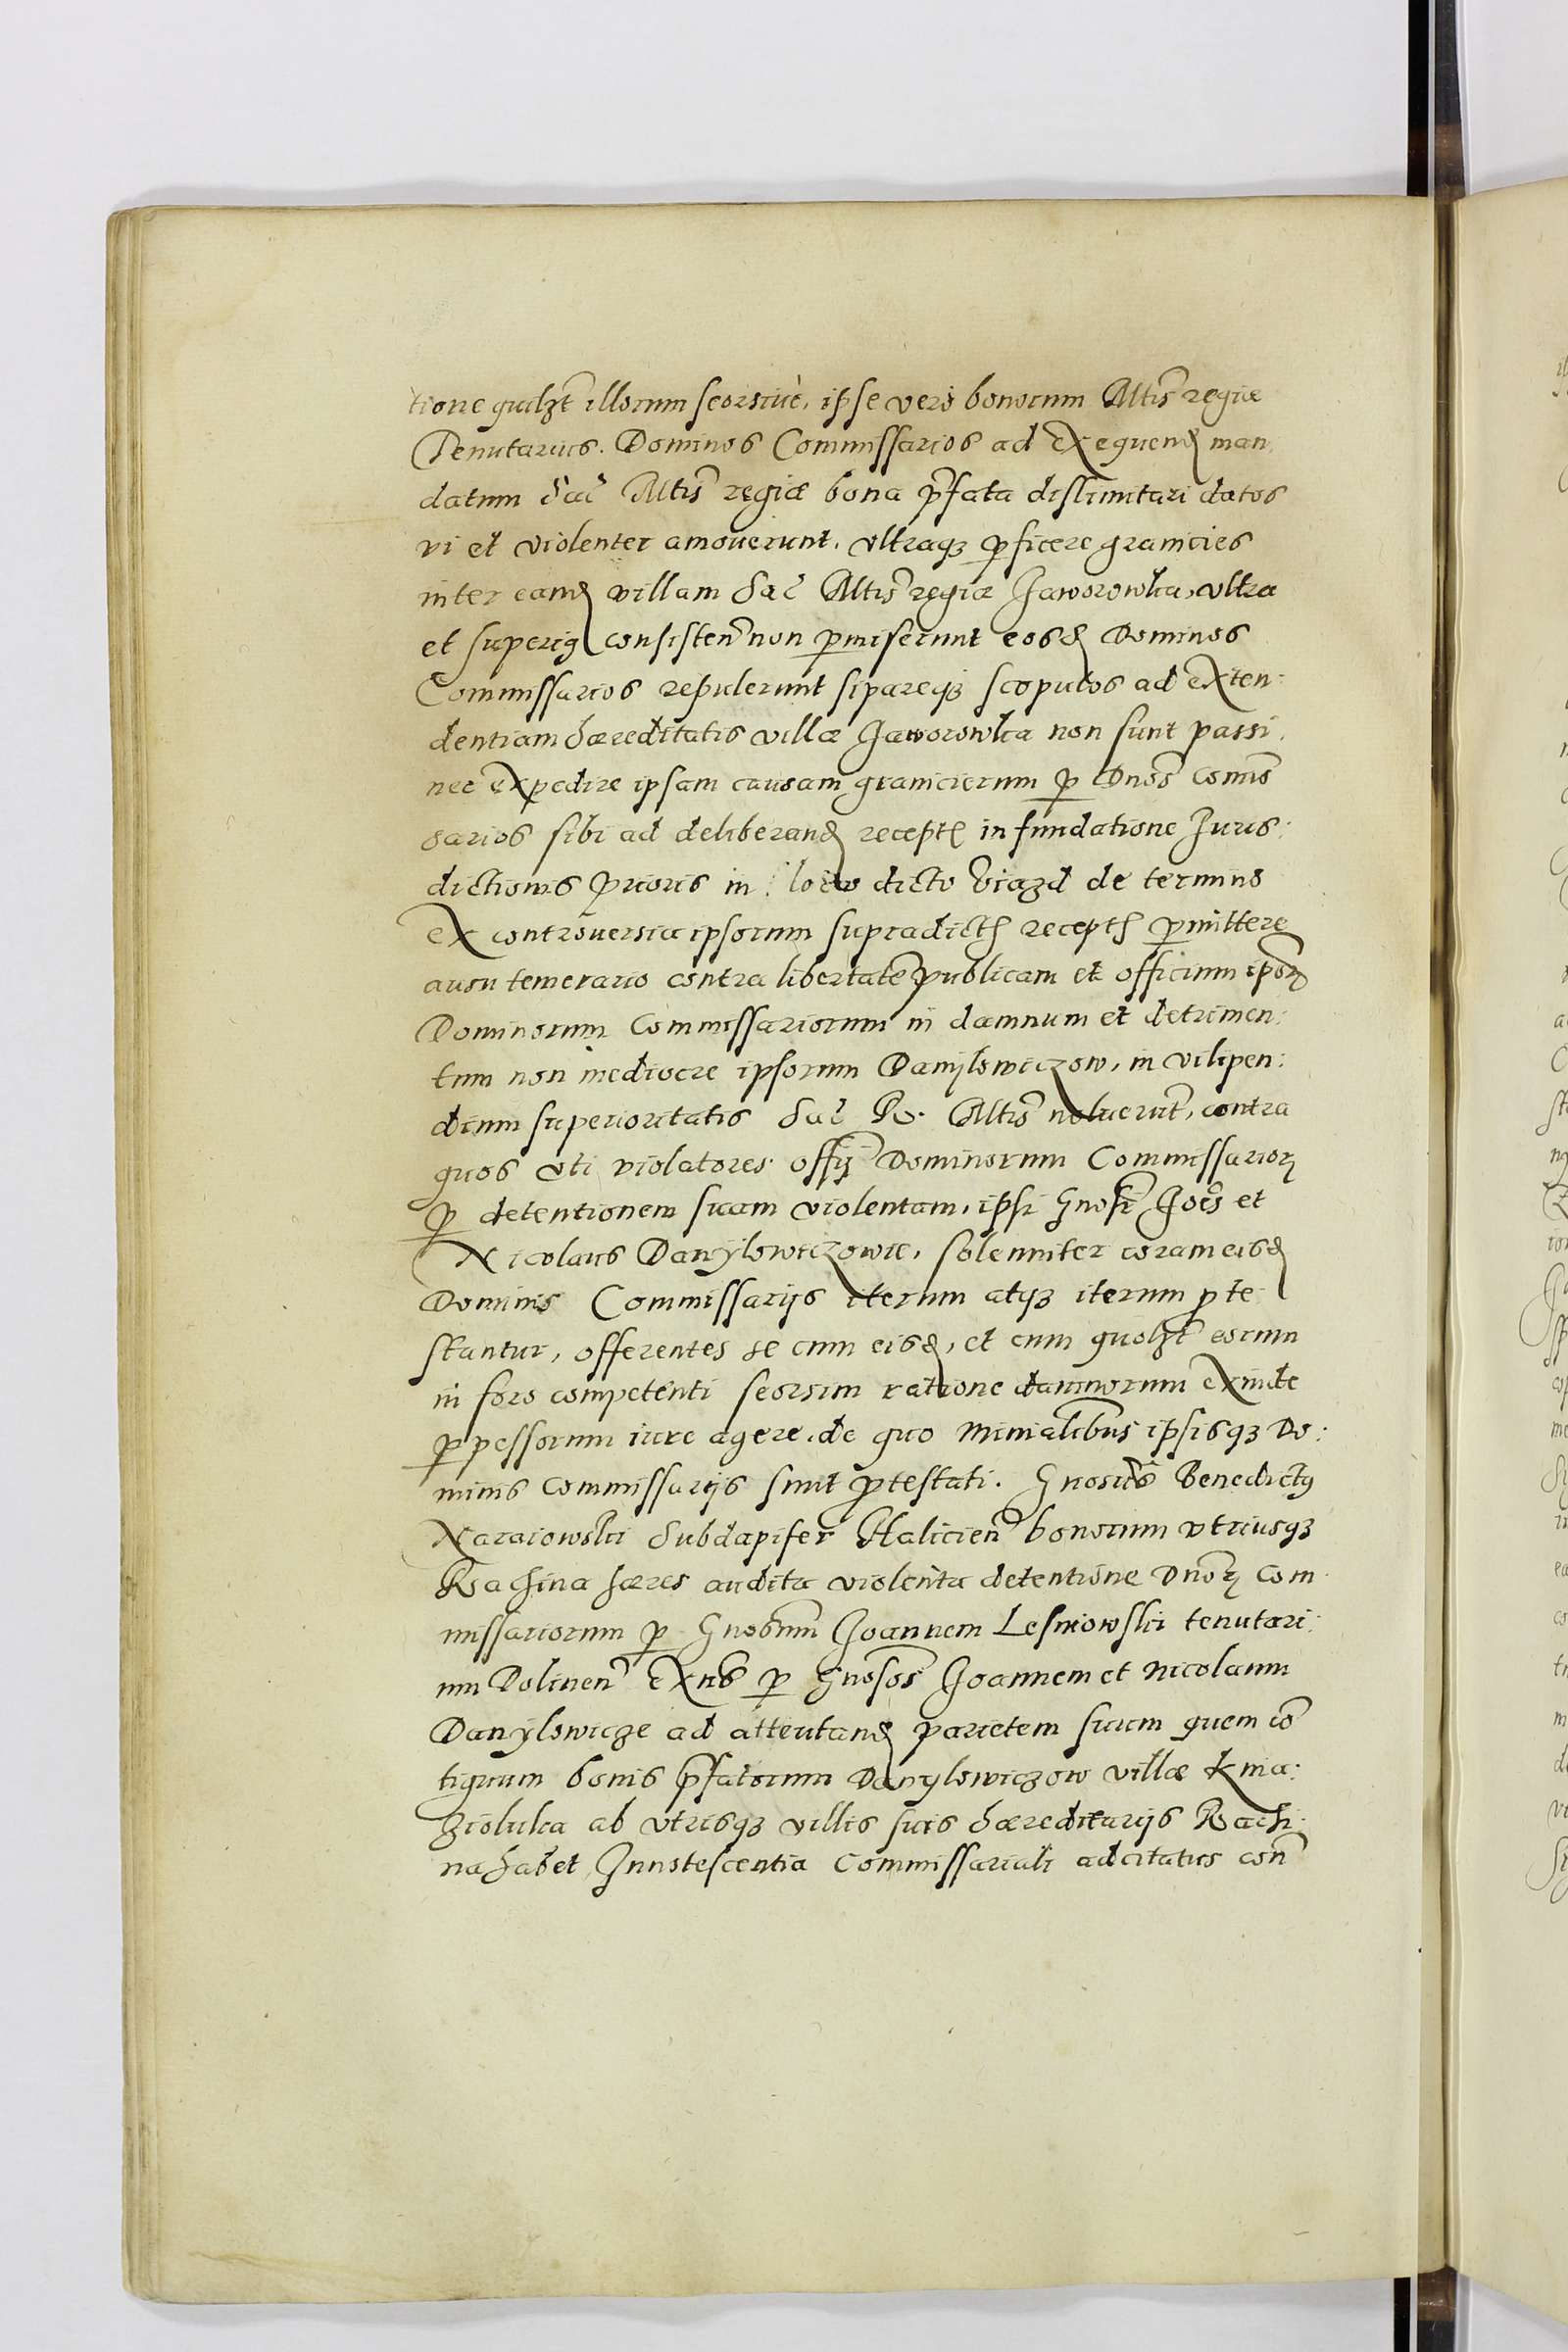 tione quilzt illorum seorsivè, ipse vero bonorum Mtis regiæ
Tenutarius. Dominos Commissarios ad exequend man
datum Sac Mtis regiæ bona pfata dislimitari datos
vi et violenter amoverunt, vltraqz pficere granicies
inter eand villam Sac Mtis regiæ Jaworowka, vltra
et superius consisten non pmiserunt eosd Dominos
Commissarios repulerunt sipareqz scopulos ad exten:
dentiam hæreditatis villæ Jaworowka non sunt passi,
nec expedire ipsam causam granicierum p Dnos Comis
sarios sibi ad deliberand recept in fundatione Juris:
dictionis prioris in loco dicto Viazd de termino
ex controversia ipsorum supradict recept pmittere
ausu temerario contra libertatē publicam et officium ipsor
Dominorum Commissariorum in damnum et detrimen:
tum non mediocre ipsorum Danijlowiczow, in vilipen:
dium superioritatis Sac R. Mtis noluerūt, contra
quos vti violatores offij Dominorum Commissarior
p detentionem suam violentam, ipsi Gnosi Joēs et
Nicolaus Danÿlowiczowie, solenniter coram eisd
Dominis Commissarijs iterum atqz iterum prote
stantur, offerentes se cum eisd, et cum quolzt eorum
in foro competenti seorsim ratione damnorum exinde
ppessorum iure agere, de quo Minialibus ipsisqz Do:
minis Commissarijs sunt protestati. Gnosus Benedictus
Naraiowski Subdapifer Halicien bonorum vtriusqz
Rachina hæres audita violenta detentione Dnor Com
missariorum p Gnosum Joannem Lesniowski tenutari:
um Dolinen exnūs p Gnosos Joannem et Nicolaum
Danÿlowicze ad attentand parietem suum quem cō
tiguum bonis pfatorum Danylowiczow villæ Knia:
ziolułka ab vtrisqz villis suis hæreditarijs Rachi:
na habet Innotescentia Commissariali adcitatus con